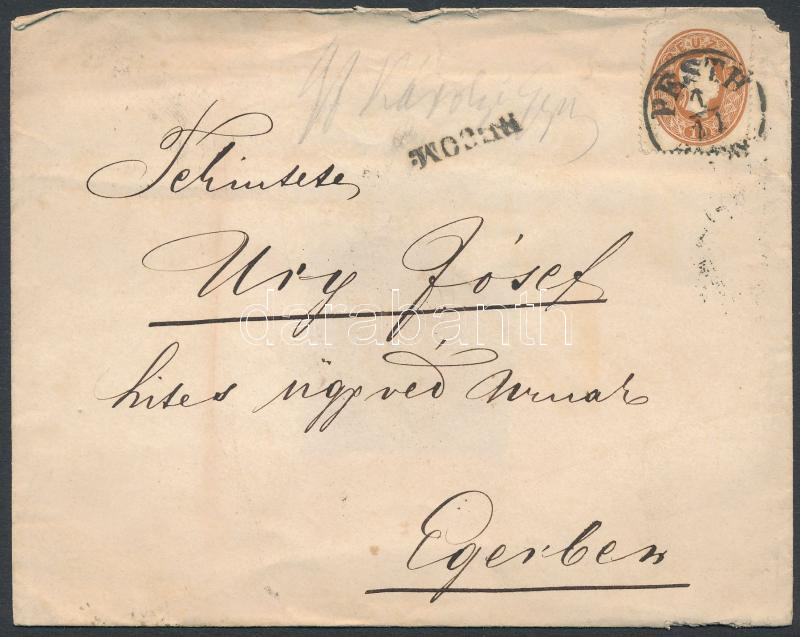 PESTH
7
11
RECOM
Tekintetes
Ury József
hites ügyvéd Urnak
Egerben
darabanth